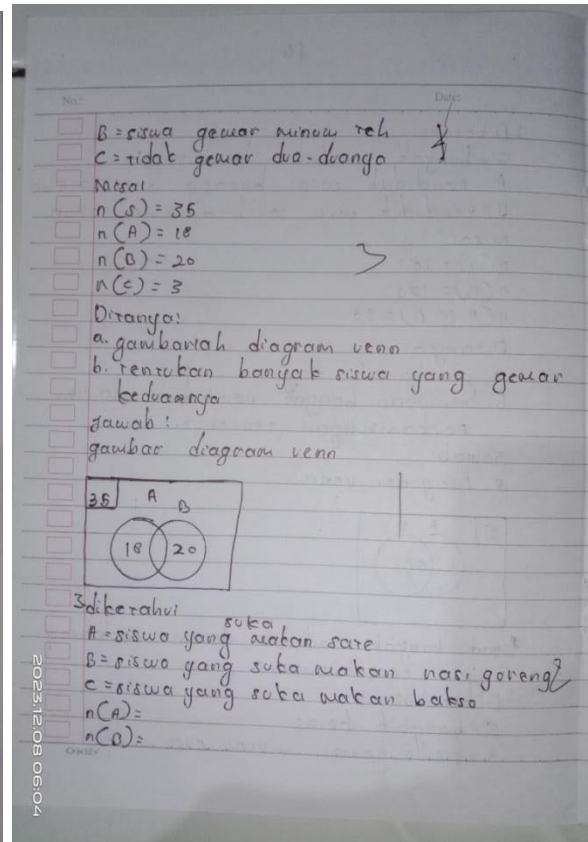 No.:
Date:
B = siswa gemar minum teh
C = tidak gemar dua-duanya
Misal
n(S) = 35
n(A) = 18
n(B) = 20
n(C) = 3
Ditanya:
a. gambarlah diagram venn
b. tentukan banyak siswa yang gemar
keduanya
Jawab :
gambar diagram venn
35 A B
18 20
3 diketahui
suka
A = siswa yang makan sate
B = siswa yang suka makan nasi goreng
C = siswa yang suka makan bakso
n(A) =
n(B) =
2023.12.08 06:04